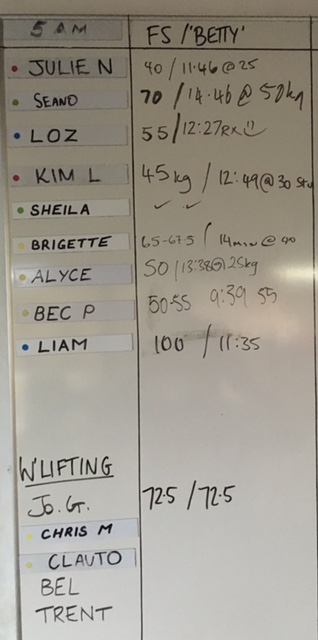 5 AM FS / 'BETTY'
JULIE N 40 / 11:46 @ 25
SEANO 70 / 14:46 @ 50kg
LOZ 55 / 12:27 RX
KIM L 45kg / 12:49 @ 30
SHEILA ✓ ✓
BRIGETTE 65-67.5 / 14min @ 40
ALYCE 50 / 13:38 @ 25kg
BEC P 50-55 9:39 55
LIAM 100 / 11:35
W'LIFTING
Jo. G. 72.5 / 72.5
CHRIS M
CLAUTO
BEL
TRENT